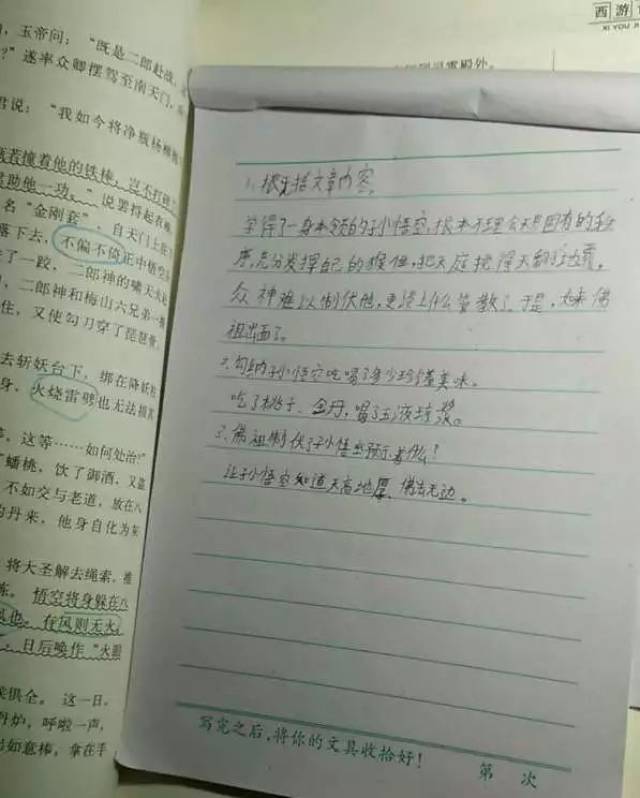 西游
XI YOU
，玉帝问：“既是二郎赴战，
？”遂率众卿摆驾至南天门，
君说：“我如今将净瓶杨柳
若撞着他的铁棒，岂不打碎
助他一功。”说罢捋起衣
名“金刚套”，自天门上往下
落下去，不偏不倚正中悟空
了一跤，二郎神的啸天犬
，二郎神和梅山六兄弟一
住，又使勾刀穿了琵琶骨，
去斩妖台下，绑在降妖柱
身，火烧雷劈也无法损其
，这等……如何处治？”
蟠桃，饮了御酒，又盗
不如交与老道，放在八
丹来，他身自化为灰
将大圣解去绳索，推
炼。悟空将身躲在八
风也，有风则无火，
，日后唤作“火眼
俱全。这一日，
丹炉，呼啦一声，
如意棒，拿在手
1、概括文章内容。
学得了一身本领的孙悟空，根本不理会天界固有的秩
序，充分发挥自己的猴性，把天庭搅得天翻地覆。
众神难以制伏他，更没上什么管教了。于是，如来佛
祖出面了。
2、归纳孙小悟空吃喝了多少珍馐美味。
吃了桃子、金丹，喝了玉液琼浆。
3、佛祖制伏了孙悟空预示着什么！
让孙悟空知道天高地厚、佛法无边。
写完之后，将你的文具收拾好！
第 次